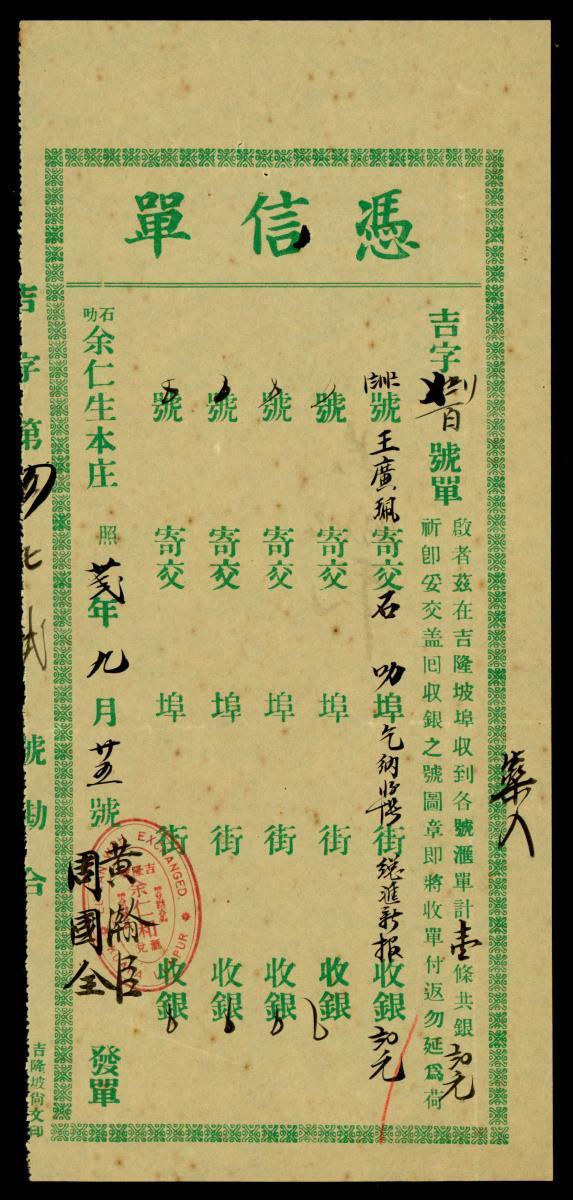 憑信單
吉字百號單
啟者茲在吉隆坡埠收到各號滙單計壹條共銀元
祈即妥交盖囘收銀之號圖章即將收單付返勿延爲荷
號王廣珮寄交石叻埠街總滙新报收銀元
號寄交埠街收銀
號寄交埠街收銀
號寄交埠街收銀
號寄交埠街收銀
石叻余仁生本庄照年九月號
黄瀚臣
周國全
發單
吉字第號勘合
吉隆坡尚文印
EXCHANGED
吉隆
余仁和
滙兌